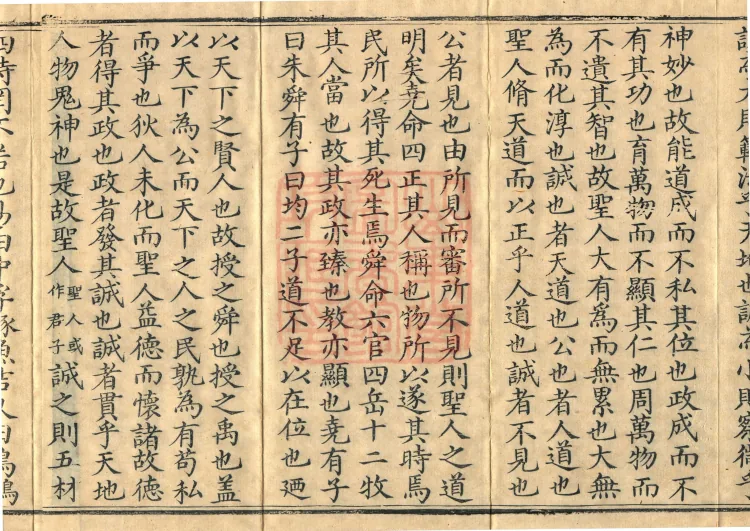 大則範法乎天地也誠而小則察微乎
神妙也故能道成而不私其位也政成而不
有其功也育萬物而不顯其仁也周萬物而
不遺其智也故聖人大有為而無累也大無
為而化淳也誠也者天道也公也者人道也
聖人脩天道而以正乎人道也誠者不見也
公者見也由所見而審所不見則聖人之道
明矣堯命四正其人稱也物所以遂其時焉
民所以得其死生焉舜命六官四岳十二牧
其人當也故其政亦臻也教亦顯也堯有子
曰朱舜有子曰均二子道不足以在位也廼
以天下之賢人也故授之舜也授之禹也盖
以天下為公而天下之人之民孰為有苟私
而爭也狄人未化而聖人益德而懷諸故德
者得其政也政者發其誠也誠者貫乎天地
人物鬼神也是故聖人聖人或作君子誠之則五材
四時罔不若也易曰中孚豚魚吉又曰鳴鶴